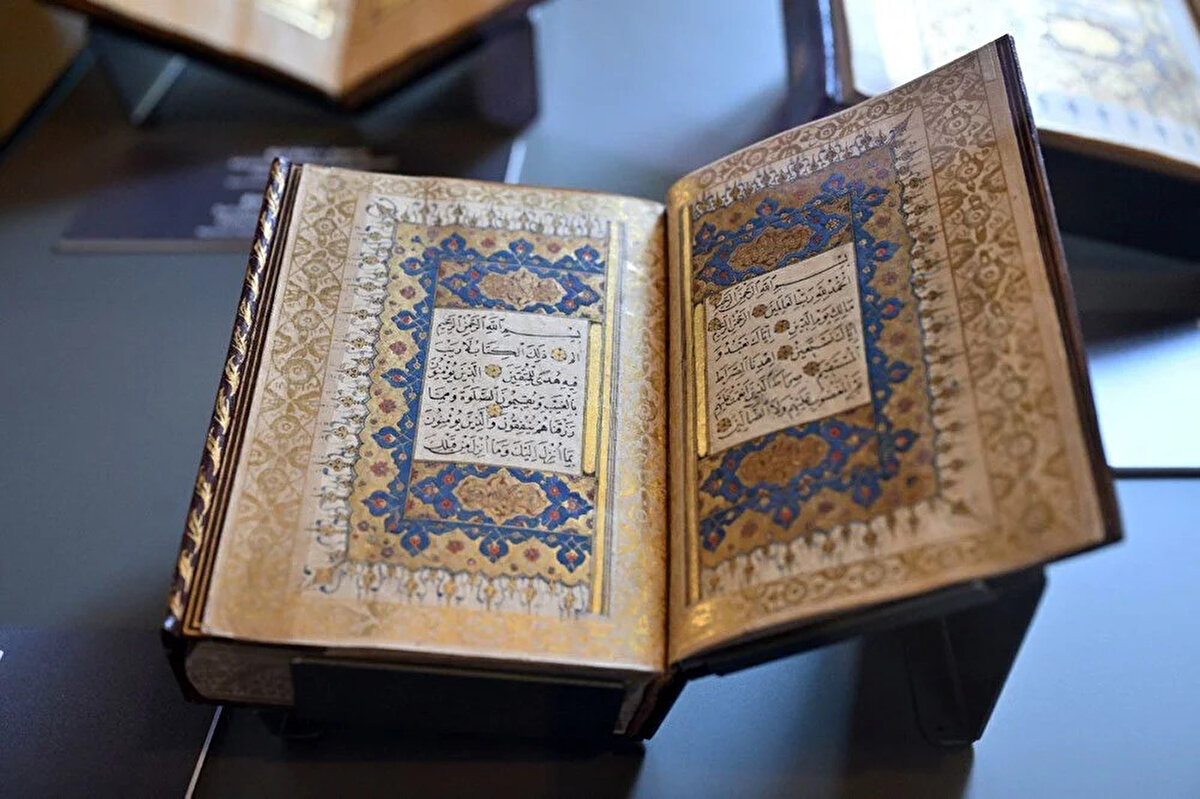 بِسْمِ اللهِ الرَّحْمٰنِ الرَّحِيمِ
اَلْحَمْدُ لِلّٰهِ رَبِّ الْعَالَمِينَ الرَّحْمٰنِ الرَّحِيمِ
مَالِكِ يَوْمِ الدِّينِ اِيَّاكَ نَعْبُدُ وَ
اِيَّاكَ نَسْتَعِينُ اِهْدِنَا الصِّرَاطَ
الْمُسْتَقِيمَ صِرَاطَ الَّذِينَ اَنْعَمْتَ عَلَيْهِمْ
غَيْرِ الْمَغْضُوبِ عَلَيْهِمْ وَلَا الضَّالِّينَ
بِسْمِ اللهِ الرَّحْمٰنِ الرَّحِيمِ
الم ذٰلِكَ الْكِتَابُ لَا رَيْبَ
فِيهِ هُدًى لِلْمُتَّقِينَ الَّذِينَ يُؤْمِنُونَ
بِالْغَيْبِ وَيُقِيمُونَ الصَّلٰوةَ وَمِمَّا
رَزَقْنَاهُمْ يُنْفِقُونَ وَالَّذِينَ يُؤْمِنُونَ
بِمَا اُنْزِلَ اِلَيْكَ وَمَا اُنْزِلَ مِنْ قَبْلِكَ